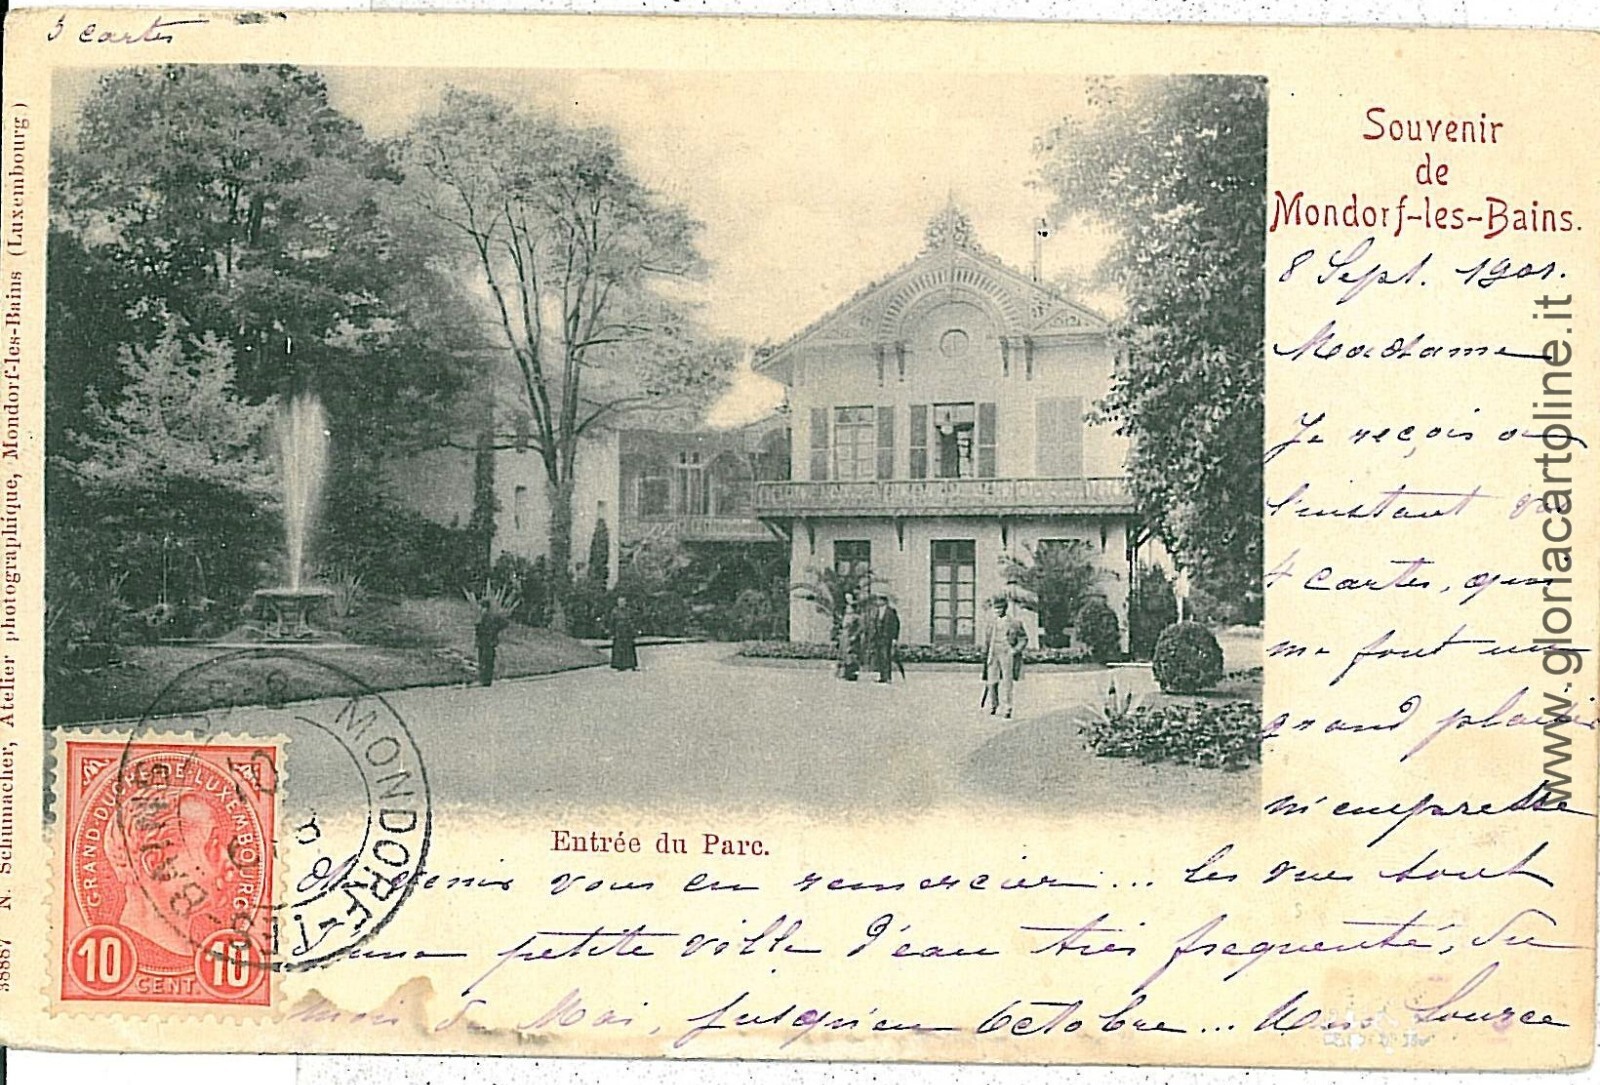 5 cartes
Souvenir
de
Mondorf-les-Bains.
8 Sept. 1901.
Madame
Je reçois à
l'instant vos
4 cartes, qui
me font un
grand plaisir
m'empresse
venir vous en remercier... Les vues sont
d'une petite ville d'eau très frequenté, du
mois de Mai, jusqu'en Octobre... Une Source
Entrée du Parc.
38887 N. Schumacher, Atelier photographique, Mondorf-les-Bains (Luxembourg)
GRAND-DUCHÉ-DE-LUXEMBOURG
10 10
CENT.
MONDORF-LES-BAINS
www.gloriacartoline.it